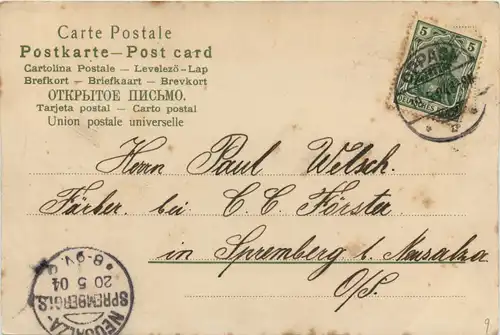 Carte Postale
Postkarte — Post card
Cartolina Postale — Levelező-Lap
Brefkort — Briefkaart — Brevkort
ОТКРЫТОЕ ПИСЬМО.
Tarjeta postal — Carto postal
Union postale universelle
5 5
DEUTSCHES
Herrn Paul Welsch.
Färber. bei C. C. Förster
in Spremberg b. Neusalza
O/S.
NEUSALZA-
SPREMBERG i. S.
20 5 04
8-9 V.